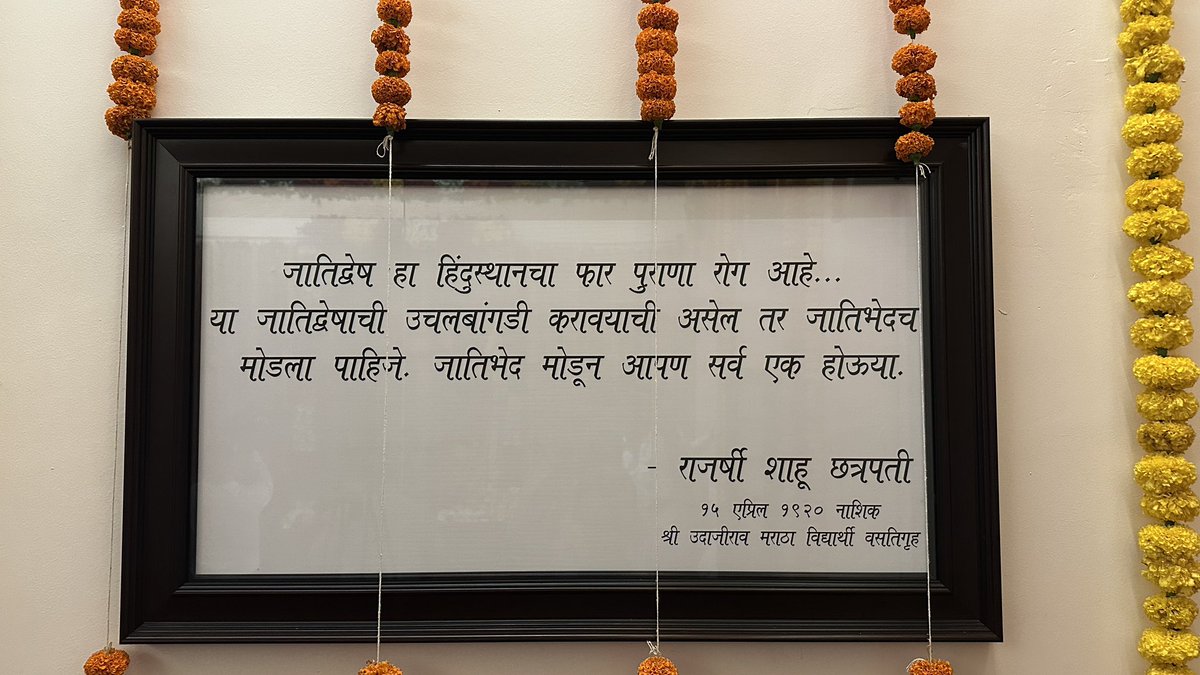 जातिद्वेष हा हिंदुस्थानचा फार पुराणा रोग आहे...
या जातिद्वेषाची उचलबांगडी करावयाची असेल तर जातिभेदच
मोडला पाहिजे. जातिभेद मोडून आपण सर्व एक होऊया.
- राजर्षी शाहू छत्रपती
१५ एप्रिल १९२० नाशिक
श्री उदाजीराव मराठा विद्यार्थी वसतिगृह